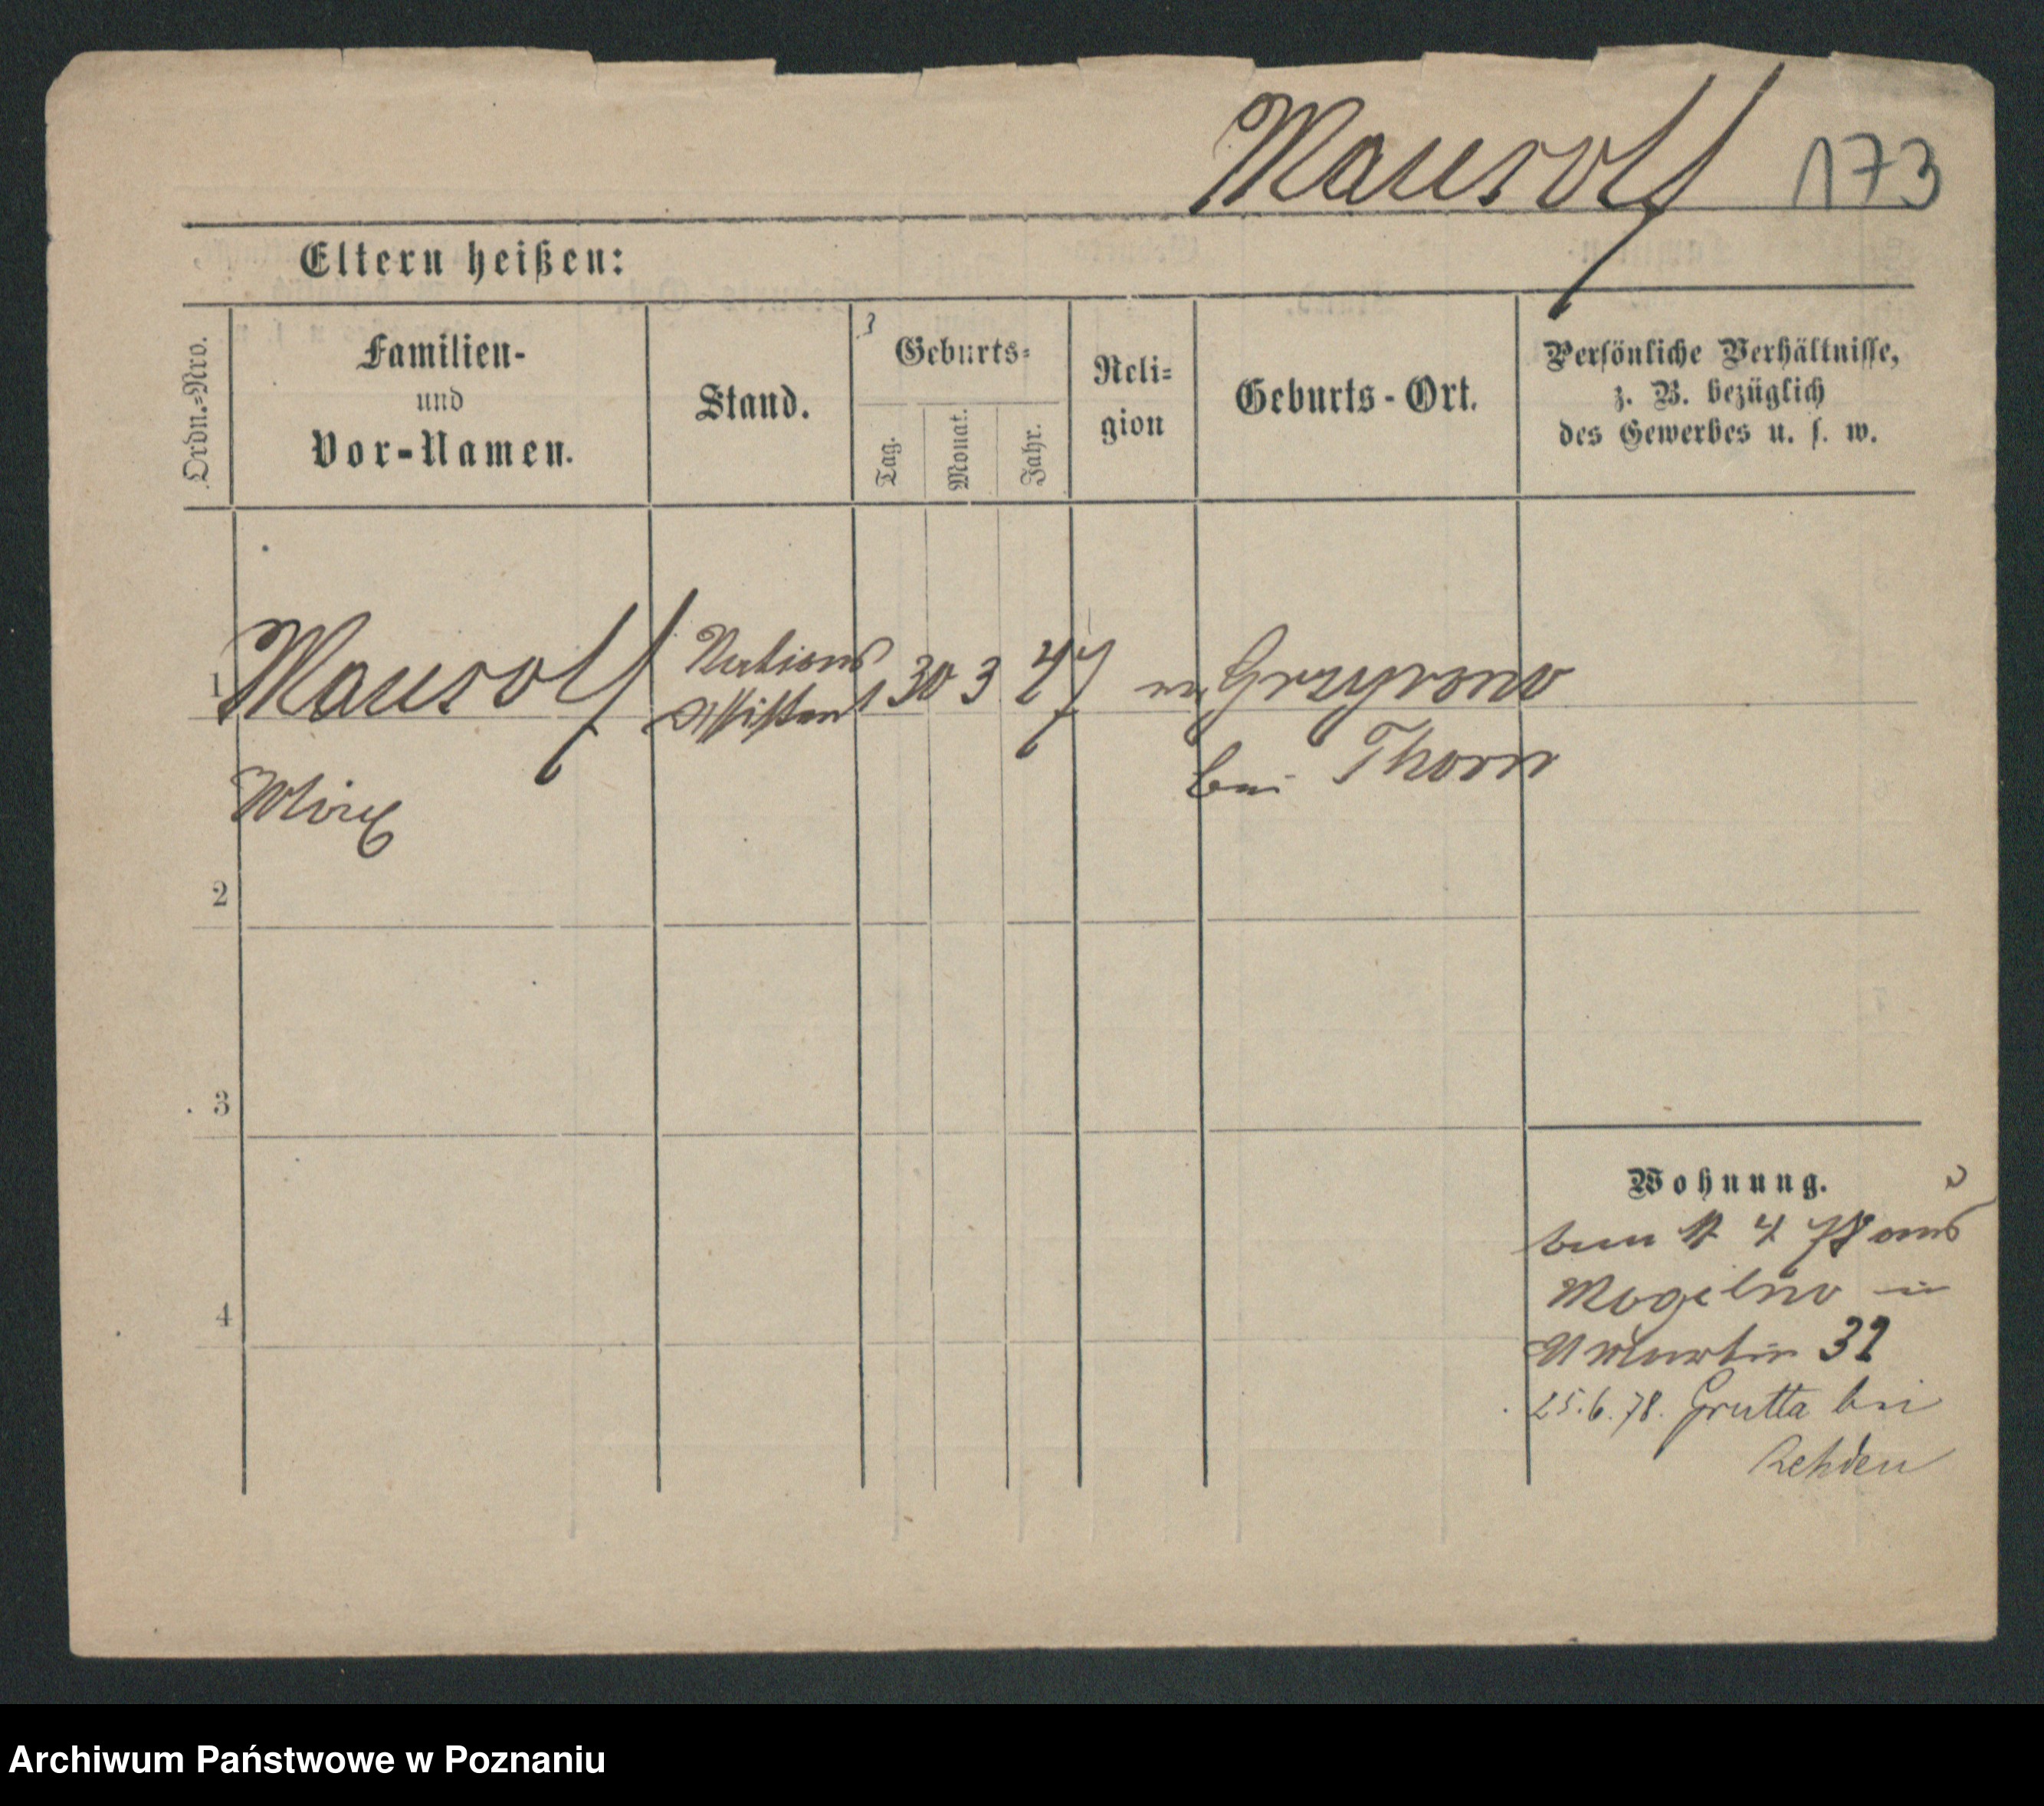 Mausolf 173
Eltern heißen:
Ordn.-Nro.
Familien-
und
Vor-Namen.
Stand.
Geburts-
Tag.
Monat.
Jahr.
Reli-
gion
Geburts-Ort.
Persönliche Verhältnisse,
z. B. bezüglich
des Gewerbes u. s. w.
1 Mausolf
Assistent
30 3 47
Grzywno
bei Thorn
Max
2
3
4
Wohnung.
4 78 aus
Mogilno in
St Martin 32
25.6.78. Grutta bei
Rehden
Archiwum Państwowe w Poznaniu